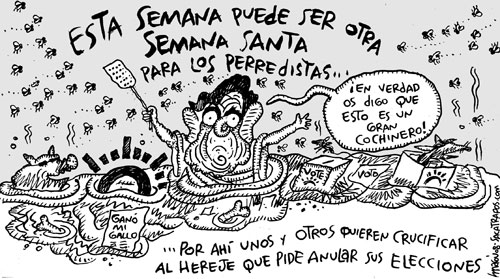 ESTA SEMANA PUEDE SER OTRA
SEMANA SANTA
PARA LOS PERREDISTAS...
¡EN VERDAD
OS DIGO QUE
ESTO ES UN
GRAN
COCHINERO!
VOTE
VOTO
GANÓ
MI
GALLO
...POR AHÍ UNOS Y OTROS QUIEREN CRUCIFICAR
AL HEREJE QUE PIDE ANULAR SUS ELECCIONES